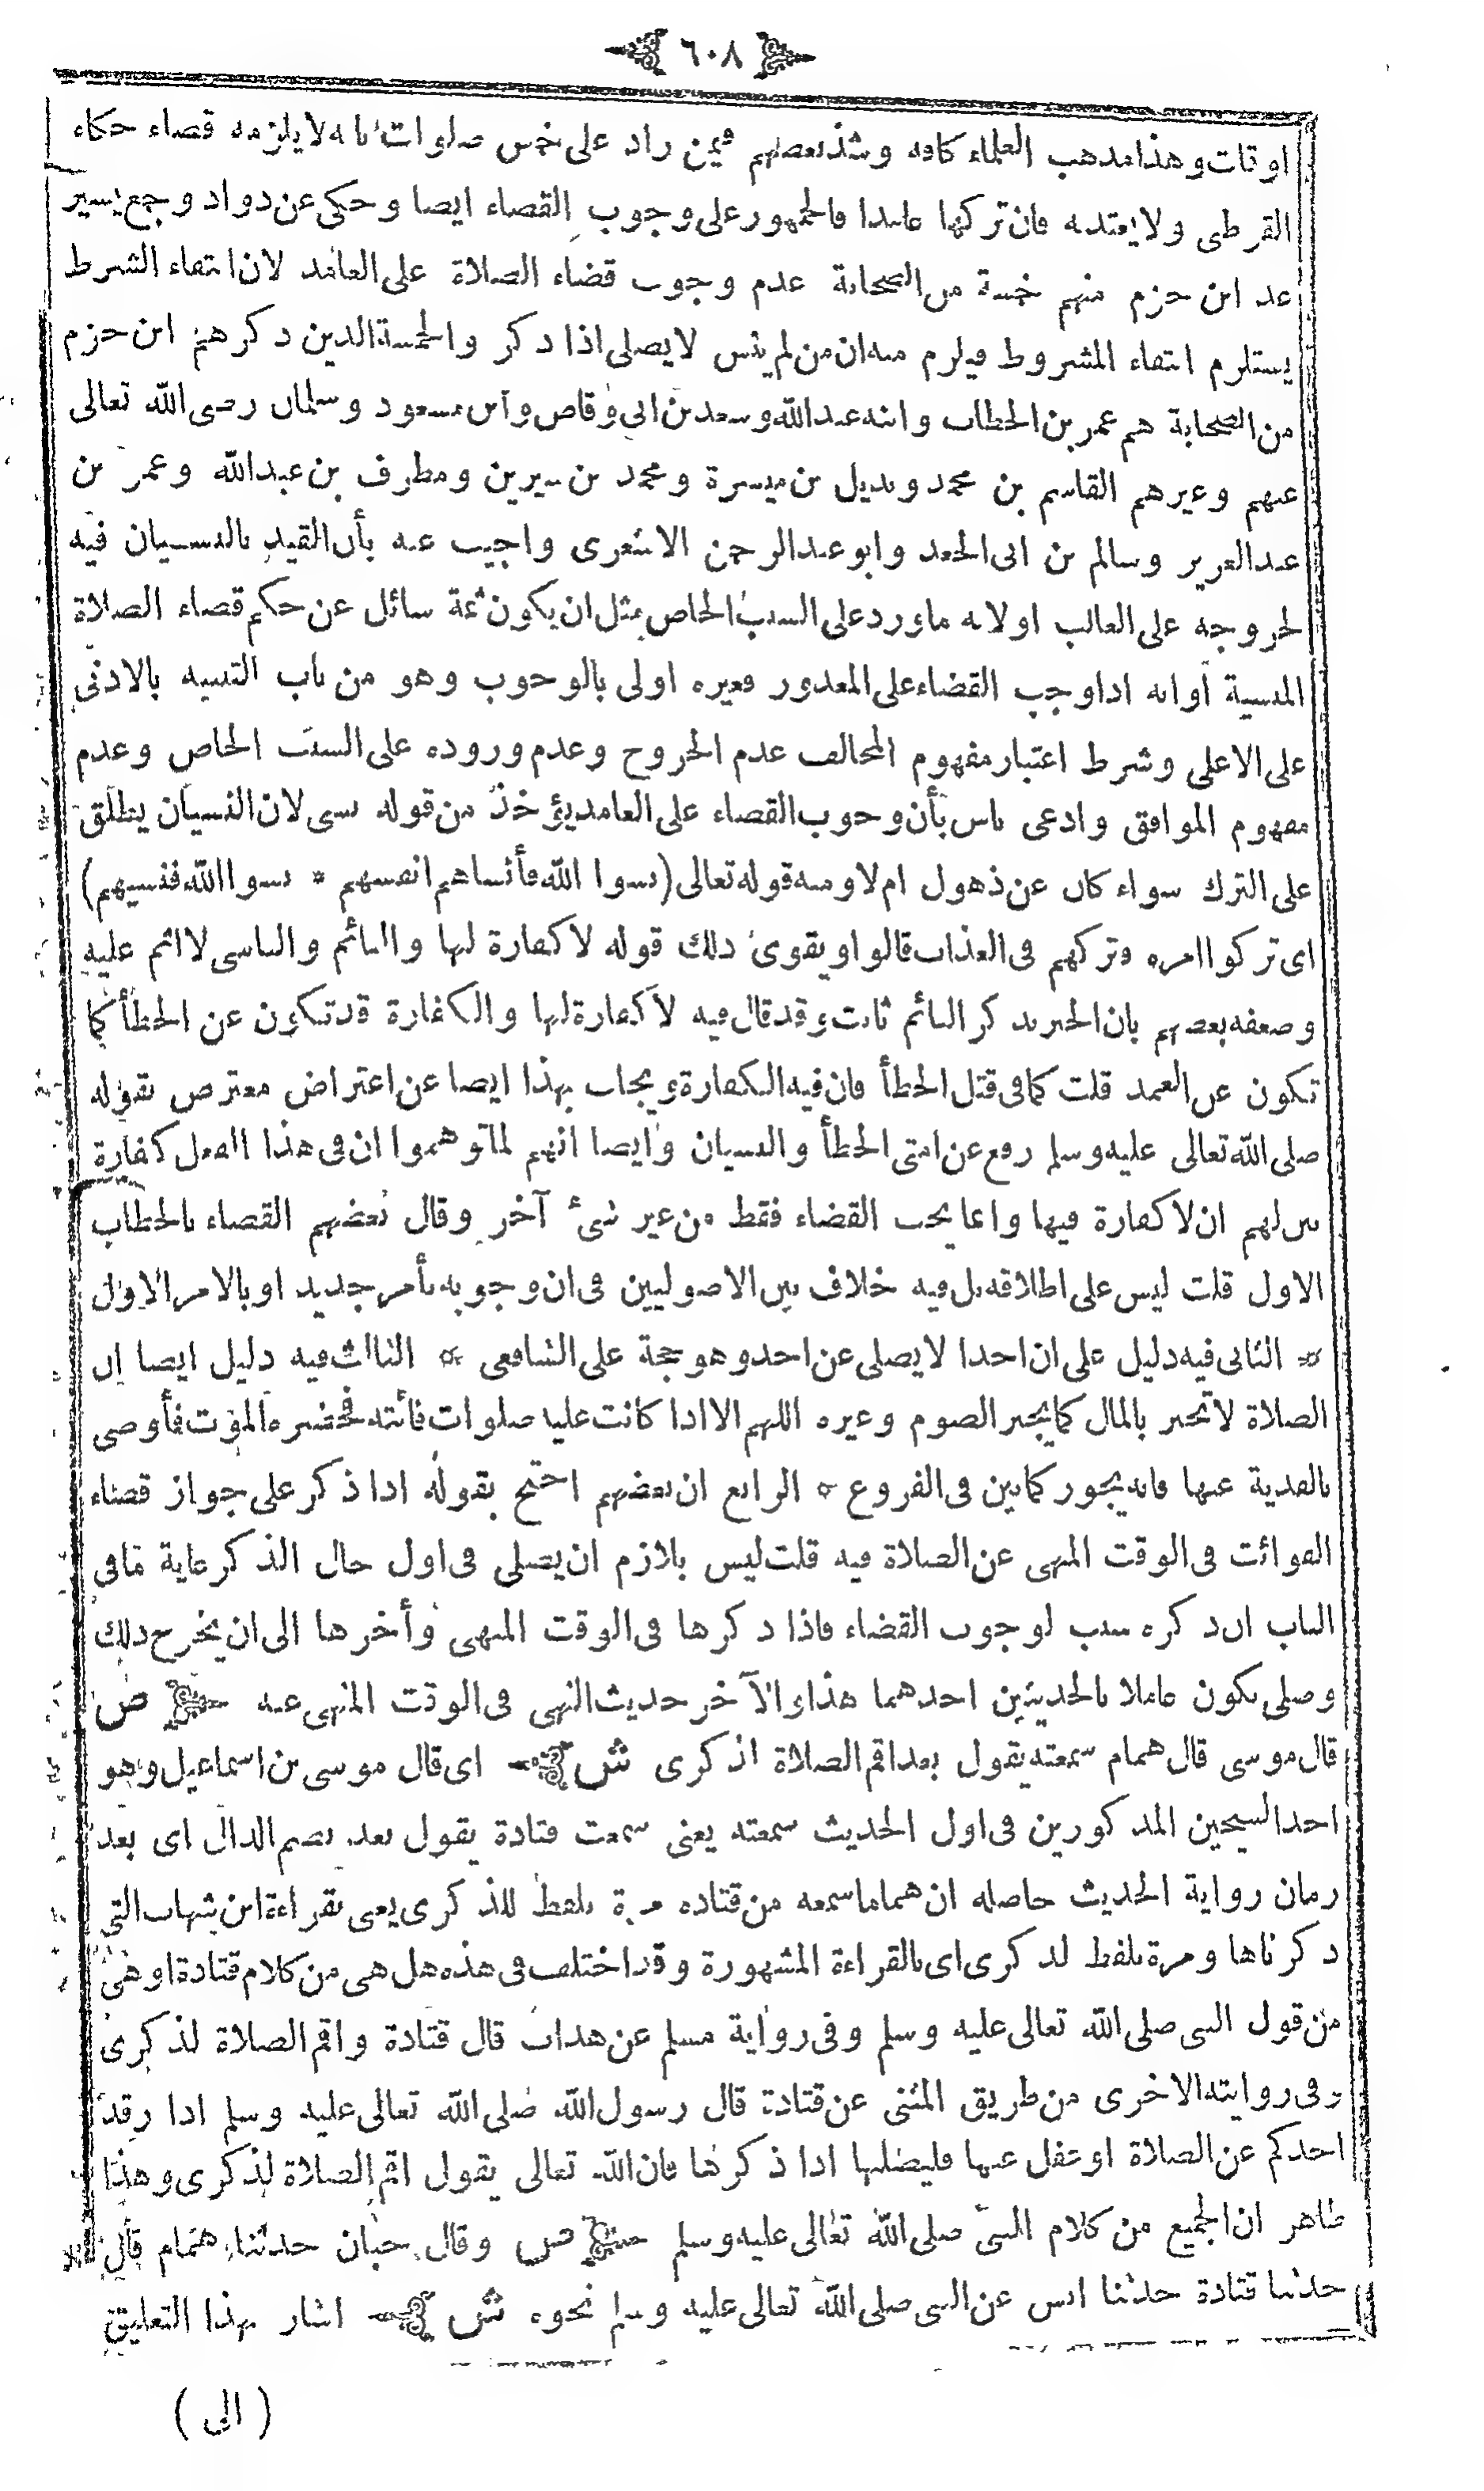 ٦٠٨
اوقات وهذا مذهب العلماء كافة وشذ بعضهم فيمن زاد على خمس صلوات بانه لا يلزمه قضاء حكاه
القرطبى ولا يعتد به فان تركها عامدا فالجمهور على وجوب القضاء ايضا وحكى عن دواد وجمع يسير
عد ابن حزم منهم خمسة من الصحابة عدم وجوب قضاء الصلاة على العامد لان انتفاء الشرط
يستلزم انتفاء المشروط فيلزم منه ان من لم ينس لا يصلى اذا ذكر والخمسة الذين ذكرهم ابن حزم
من الصحابة هم عمر بن الخطاب وابنه عبد الله وسعد بن ابى وقاص وابن مسعود وسلمان رضى الله تعالى
عنهم وغيرهم القاسم بن محمد وبديل بن ميسرة ومحمد بن سيرين ومطرف بن عبد الله وعمر بن
عبد العزيز وسالم بن ابى الجعد وابو عبد الرحمن الاشعرى واجيب عنه بأن القيد بالنسيان فيه
لخروجه على الغالب اولانه ماورد على السبب الخاص مثل ان يكون ثمة سائل عن حكم قضاء الصلاة
المنسية أوانه اذا وجب القضاء على المعذور فغيره اولى بالوجوب وهو من باب التنبيه بالادنى
على الاعلى وشرط اعتبار مفهوم المخالف عدم الخروج وعدم وروده على السبب الخاص وعدم
مفهوم الموافق وادعى ناس بأن وجوب القضاء على العامد يؤخذ من قوله نسى لان النسيان يطلق
على الترك سواء كان عن ذهول ام لا ومنه قوله تعالى (نسوا الله فأنساهم انفسهم * نسوا الله فنسيهم)
اى تركوا امره وتركهم فى العذاب قالوا ويقوى ذلك قوله لا كفارة لها والنائم والناسى لا اثم عليه
وضعفه بعضهم بان الخبر بذكر النائم ثابت وقد قال فيه لا كفارة لها والكفارة قد تكون عن الخطأ كما
تكون عن العمد قلت كما فى قتل الخطأ فان فيه الكفارة ويجاب بهذا ايضا عن اعتراض معترض بقوله
صلى الله تعالى عليه وسلم رفع عن امتى الخطأ والنسيان وايضا انهم لما توهموا ان فى هذا الفعل كفارة
بين لهم ان لا كفارة فيها وانما يجب القضاء فقط من غير شئ آخر وقال بعضهم القضاء بالخطاب
الاول قلت ليس على اطلاقه بل فيه خلاف بين الاصوليين فى ان وجوبه بأمر جديد او بالامر الاول
* الثانى فيه دليل على ان احدا لا يصلى عن احد وهو حجة على الشافعى * الثالث فيه دليل ايضا ان
الصلاة لا تجبر بالمال كما يجبر الصوم وغيره اللهم الا اذا كانت عليه صلوات فائتة فحضره الموت فأوصى
بالفدية عنها فانه يجوز كما بين فى الفروع * الرابع ان بعضهم احتج بقوله اذا ذكر على جواز قضاء
الفوائت فى الوقت المنهى عن الصلاة فيه قلت ليس بلازم ان يصلى فى اول حال الذكر غاية مافى
الباب ان ذكره سبب لوجوب القضاء فاذا ذكرها فى الوقت المنهى وأخرها الى ان يخرج ذلك
وصلى يكون عاملا بالحديثين احدهما هذا والآخر حديث النهى فى الوقت المنهى عنه ص
قال موسى قال همام سمعته يقول بعد اقم الصلاة لذكرى ش اى قال موسى بن اسماعيل وهو
احد الشيخين المذكورين فى اول الحديث سمعته يعنى سمعت قتادة يقول بعد بضم الدال اى بعد
زمان رواية الحديث حاصله ان هماما سمعه من قتادة مرة بلفظ للذكرى يعنى بقراءة ابن شهاب التى
ذكرناها ومرة بلفظ لذكرى اى بالقراءة المشهورة وقد اختلف فى هذه هل هى من كلام قتادة او هى
من قول النبى صلى الله تعالى عليه وسلم وفى رواية مسلم عن هداب قال قتادة واقم الصلاة لذكرى
وفى روايته الاخرى من طريق المثنى عن قتادة قال رسول الله صلى الله تعالى عليه وسلم اذا رقد
احدكم عن الصلاة او غفل عنها فليصلها اذا ذكرها فان الله تعالى يقول اقم الصلاة لذكرى وهذا
ظاهر ان الجميع من كلام النبى صلى الله تعالى عليه وسلم ص وقال حبان حدثنا همام قال
حدثنا قتادة حدثنا انس عن النبى صلى الله تعالى عليه وسلم نحوه ش اشار بهذا التعليق
( الى )